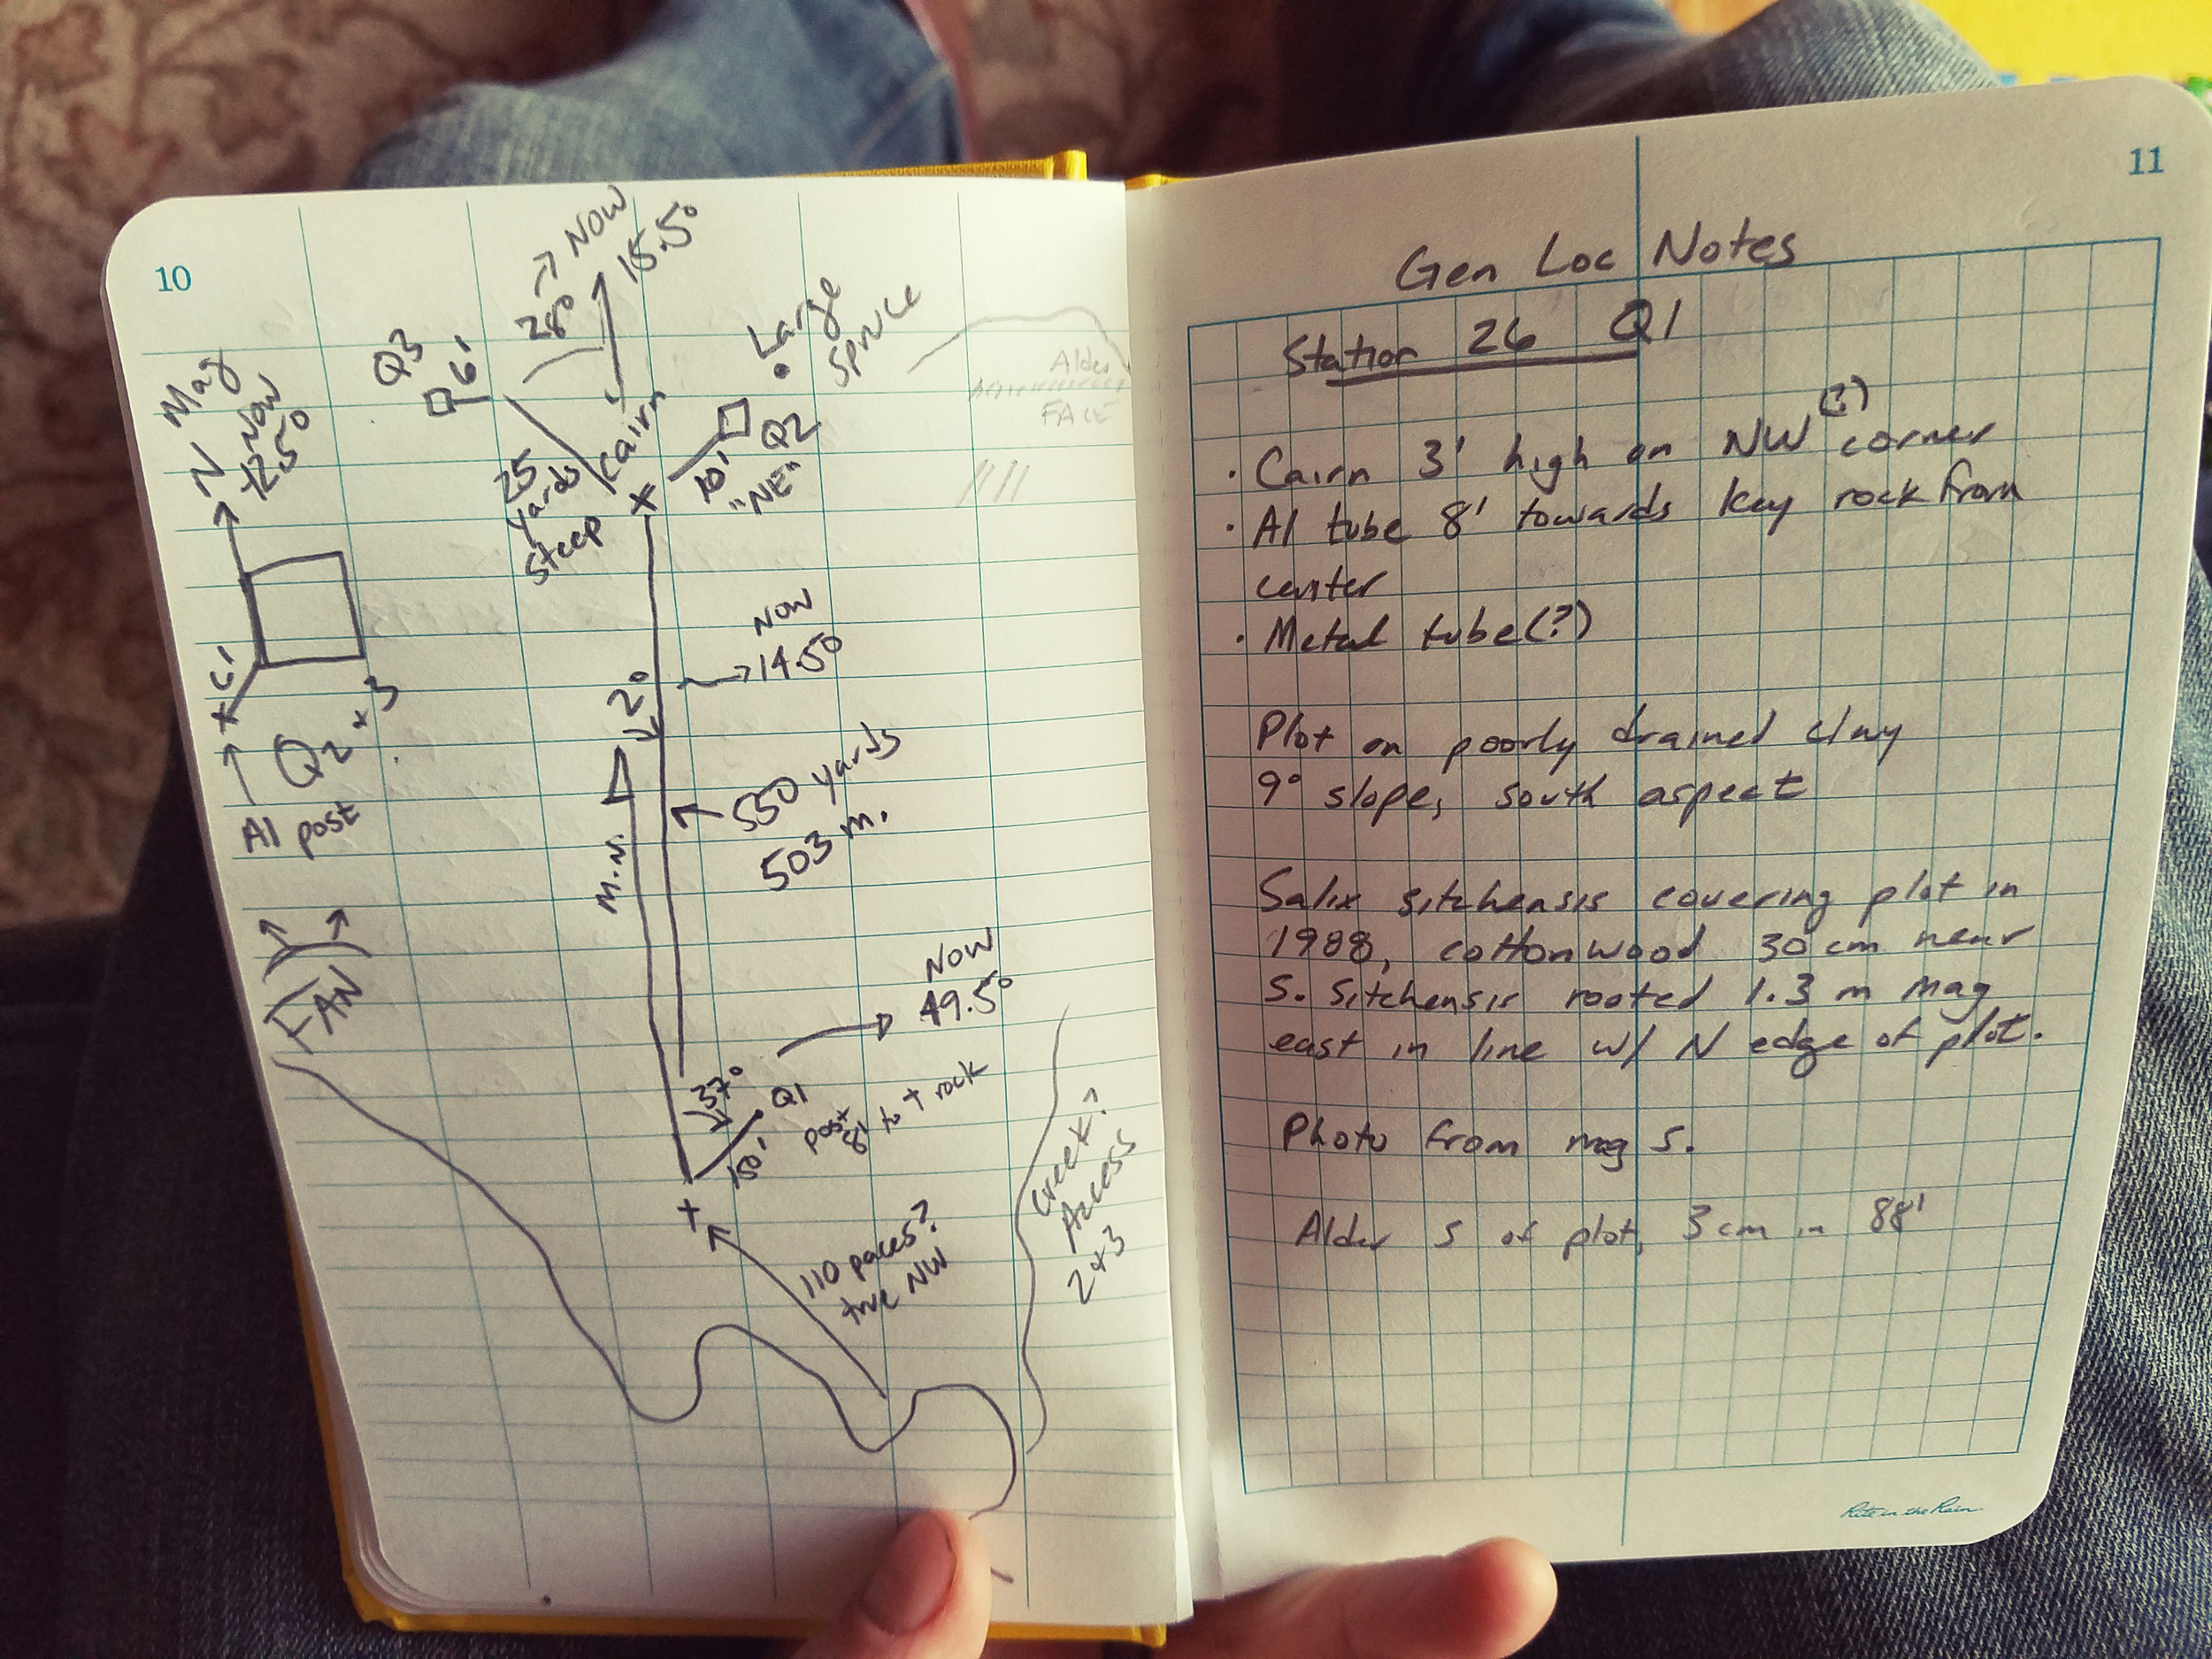 10
NOW
28° → 15.5°
Q3
6'
Large
Spruce
Alder
FACE
N Mag
Now
12.5°
cairn
Q2
10'
"NE"
25
yards
steep
NOW
14.5°
2°
6'
Q2 + 3
Al post
550 yards
503 m.
M.N.
FAN
NOW
49.5°
37°
Q1
post
8' to + rock
150'
110 paces?
true NW
creek?
Access
2+3
11
Gen Loc Notes
Station 26 Q1
• Cairn 3' high on NW (?) corner
• Al tube 8' towards key rock from
center
• Metal tube (?)
Plot on poorly drained clay
9° slope, south aspect
Salix sitchensis covering plot in
1988, cottonwood 30 cm near
S. sitchensis rooted 1.3 m mag
east in line w/ N edge of plot.
Photo from mag S.
Alder S of plot, 3 cm in 88'
Rite in the Rain